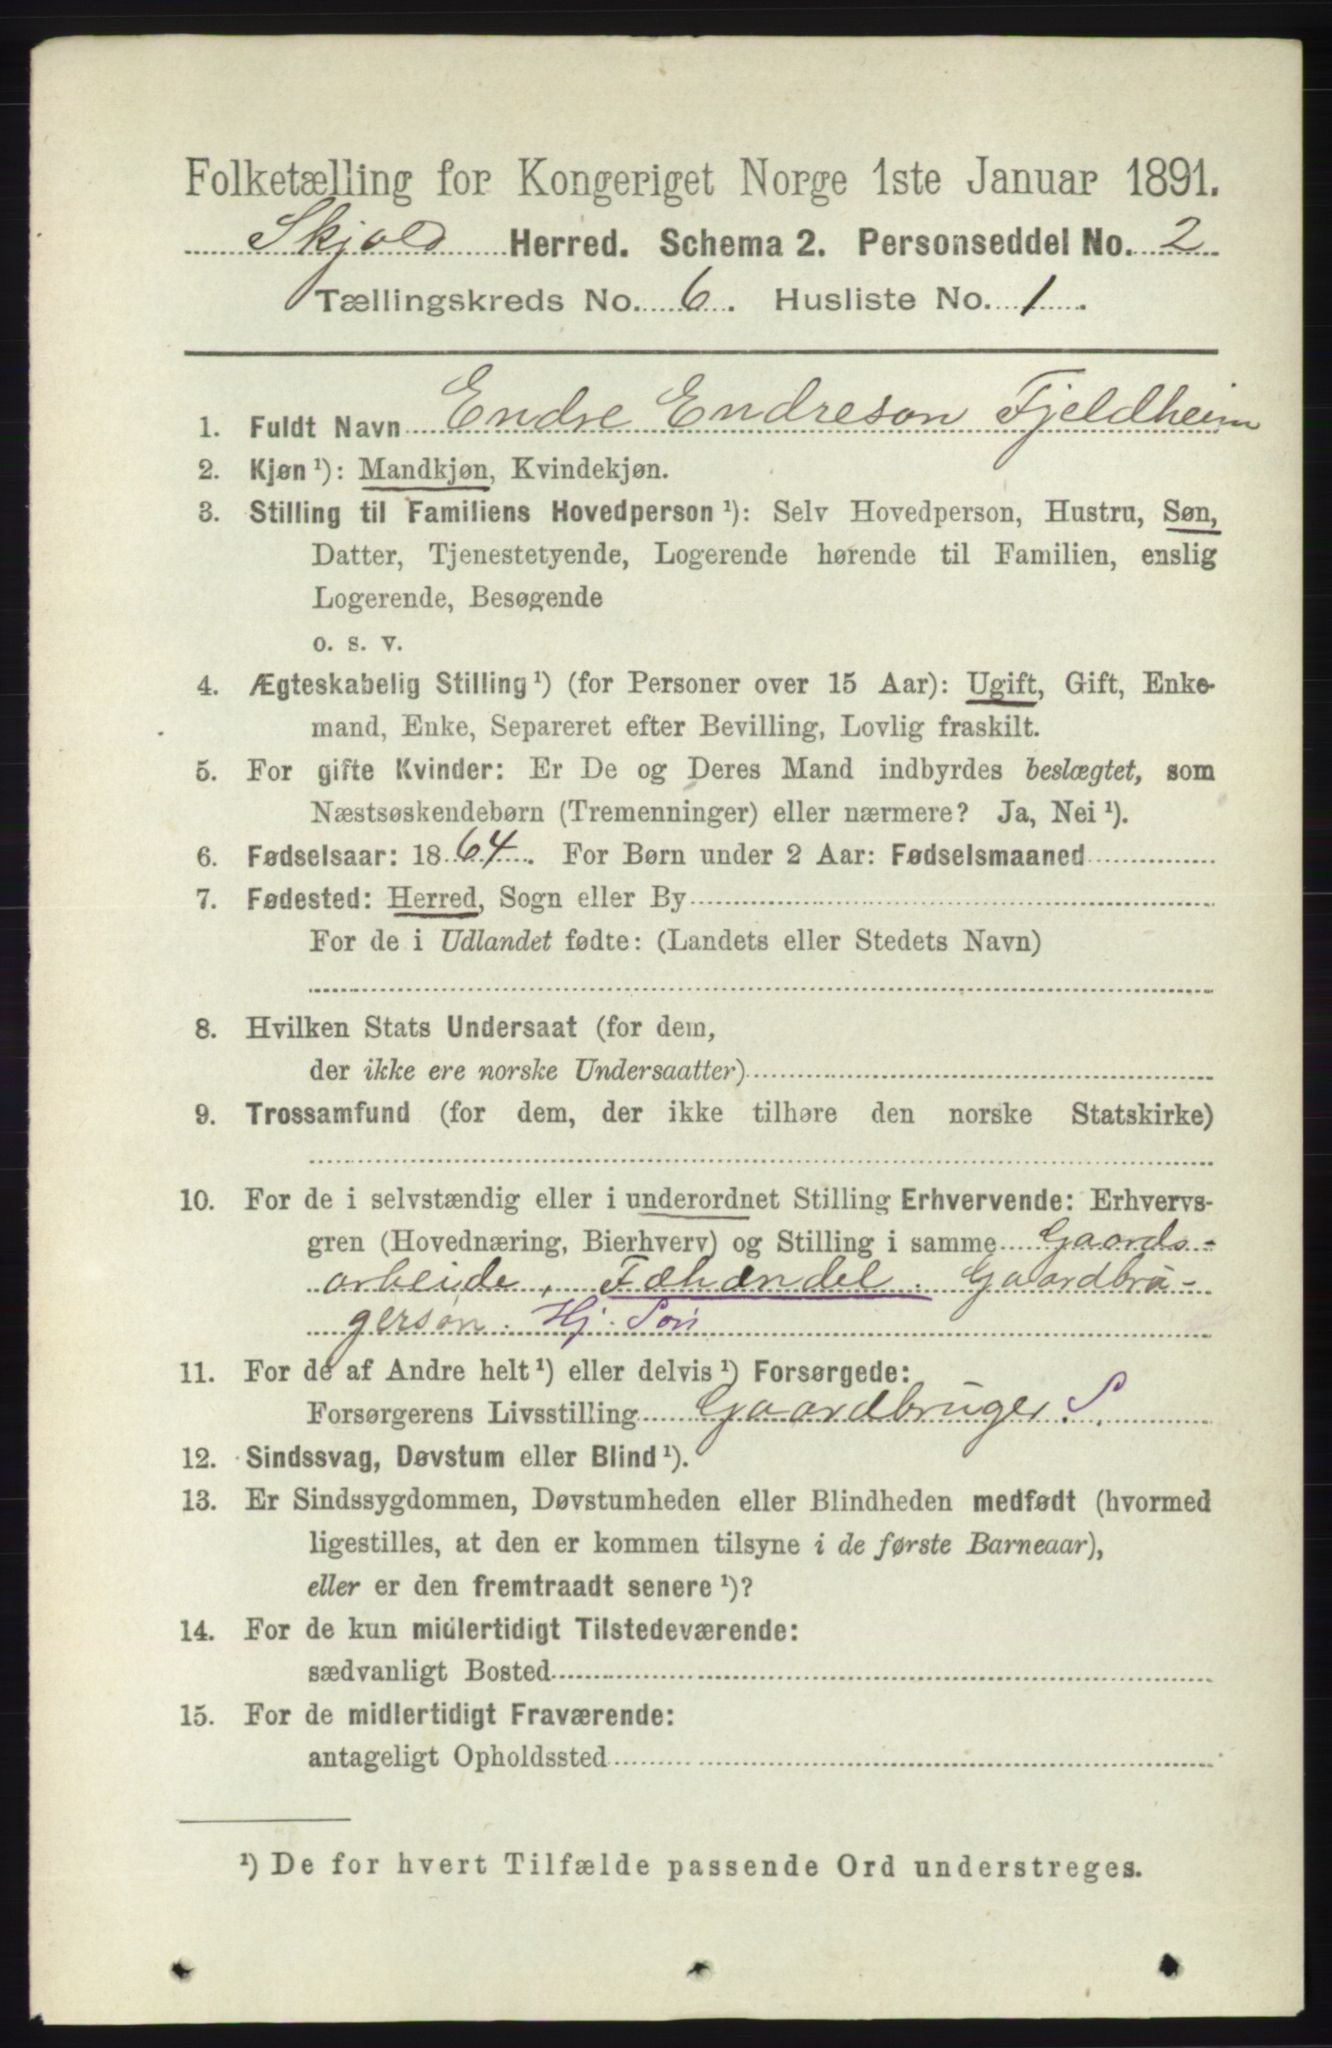 Folketælling for Kongeriget Norge 1ste Januar 1891.
Skjold Herred. Schema 2. Personseddel No. 2
Tællingskreds No. 6. Husliste No. 1.
1. Fuldt Navn Endre Endreson Fjeldheim
2. Kjøn ¹): Mandkjøn, Kvindekjøn.
3. Stilling til Familiens Hovedperson ¹): Selv Hovedperson, Hustru, Søn,
Datter, Tjenestetyende, Logerende hørende til Familien, enslig
Logerende, Besøgende
o. s. v.
4. Ægteskabelig Stilling ¹) (for Personer over 15 Aar): Ugift, Gift, Enke-
mand, Enke, Separeret efter Bevilling, Lovlig fraskilt.
5. For gifte Kvinder: Er De og Deres Mand indbyrdes beslægtet, som
Næstsøskendebørn (Tremenninger) eller nærmere? Ja, Nei ¹).
6. Fødselsaar: 1864. For Børn under 2 Aar: Fødselsmaaned
7. Fødested: Herred, Sogn eller By
For de i Udlandet fødte: (Landets eller Stedets Navn)
8. Hvilken Stats Undersaat (for dem,
der ikke ere norske Undersaatter)
9. Trossamfund (for dem, der ikke tilhøre den norske Statskirke)
10. For de i selvstændig eller i underordnet Stilling Erhvervende: Erhvervs-
gren (Hovednæring, Bierhverv) og Stilling i samme Gaards-
arbeide, Fæhandel. Gaardbru-
gersøn. Hj. Søn
11. For de af Andre helt ¹) eller delvis ¹) Forsørgede:
Forsørgerens Livsstilling Gaardbruger S.
12. Sindssvag, Døvstum eller Blind ¹).
13. Er Sindssygdommen, Døvstumheden eller Blindheden medfødt (hvormed
ligestilles, at den er kommen tilsyne i de første Barneaar),
eller er den fremtraadt senere ¹)?
14. For de kun midlertidigt Tilstedeværende:
sædvanligt Bosted
15. For de midlertidigt Fraværende:
antageligt Opholdssted
¹) De for hvert Tilfælde passende Ord understreges.